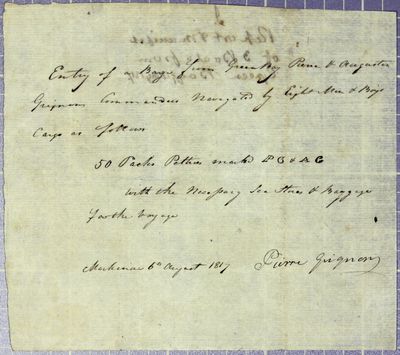 Entry of a Barge from Green Bay Pierre & Augustin
Grignon Commanders Navigated by Eight Men & Boys
Cargo as follows
50 Packs Peltries marked P G & A G
with the Necessary Sea Stores & Baggage
for the Voyage
Mackinac 6th August 1819 Pierre Grignon